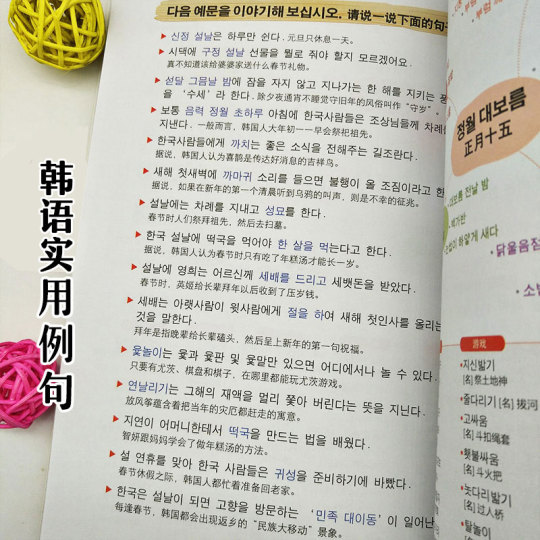 韩语实用例句
다음 예문을 이야기해 보십시오. 请说一说下面的句
신정 설날은 하루만 쉰다. 元旦只休息一天。
시댁에 구정 설날 선물을 뭘로 줘야 할지 모르겠어요.
真不知道该给婆婆家送什么春节礼物。
섣달 그믐날 밤에 잠을 자지 않고 지나가는 한 해를 지키는 풍
을 '수세' 라 한다. 除夕夜通宵不睡觉守旧年的风俗叫作"守岁"。
보통 음력 정월 초하루 아침에 한국사람들은 조상님들께 차례
지낸다. 一般而言，韩国人大年初一一早会祭祀祖先。
한국사람들에게 까치는 좋은 소식을 전해주는 길조란다.
据说，韩国人认为喜鹊是传达好消息的吉祥鸟。
새해 첫새벽에 까마귀 소리를 들으면 불행이 올 조짐이라고 한
据说，如果在新年的第一个清晨听到乌鸦的叫声，则是不幸的征兆。
설날에는 차례를 지내고 성묘를 한다.
春节时人们祭拜祖先，然后去扫墓。
한국 설날에 떡국을 먹어야 한 살을 먹는다고 한다.
据说，韩国人认为春节时只有吃了年糕汤才能长一岁。
설날에 영희는 어르신께 세배를 드리고 세뱃돈을 받았다.
春节时，英姬给长辈拜年以后收到了压岁钱。
세배는 아랫사람이 윗사람에게 절을 하여 새해 첫인사를 올리는
것을 말한다.
拜年是指晚辈给长辈磕头，然后呈上新年的第一句祝福。
윷놀이는 윷과 윷판 및 윷말만 있으면 어디에서나 놀 수 있다.
只要有尤茨、棋盘和棋子，在哪里都能玩尤茨游戏。
연날리기는 그해의 재액을 멀리 쫓아 버린다는 뜻을 지닌다.
放风筝蕴含着把当年的灾厄都赶走的寓意。
지연이 어머니한테서 떡국을 만드는 법을 배웠다.
智妍跟妈妈学会了做年糕汤的方法。
설 연휴를 맞아 한국 사람들은 귀성을 준비하기에 바빴다.
春节休假之际，韩国人都忙着准备回老家。
한국은 설날이 되면 고향을 방문하는 '민족 대이동' 이 일어난
每逢春节，韩国都会出现返乡的"民族大移动"景象。
정월 대보름
正月十五
대보름 전날 밤
눈썹이 하얗게 세다
닭울음점
游戏
지신밟기
[名] 祭土地神
줄다리기 [名] 拔河
고싸움
[名] 斗扣绳套
횃불싸움
[名] 斗火把
놋다리밟기
[名] 过人桥
탈놀이